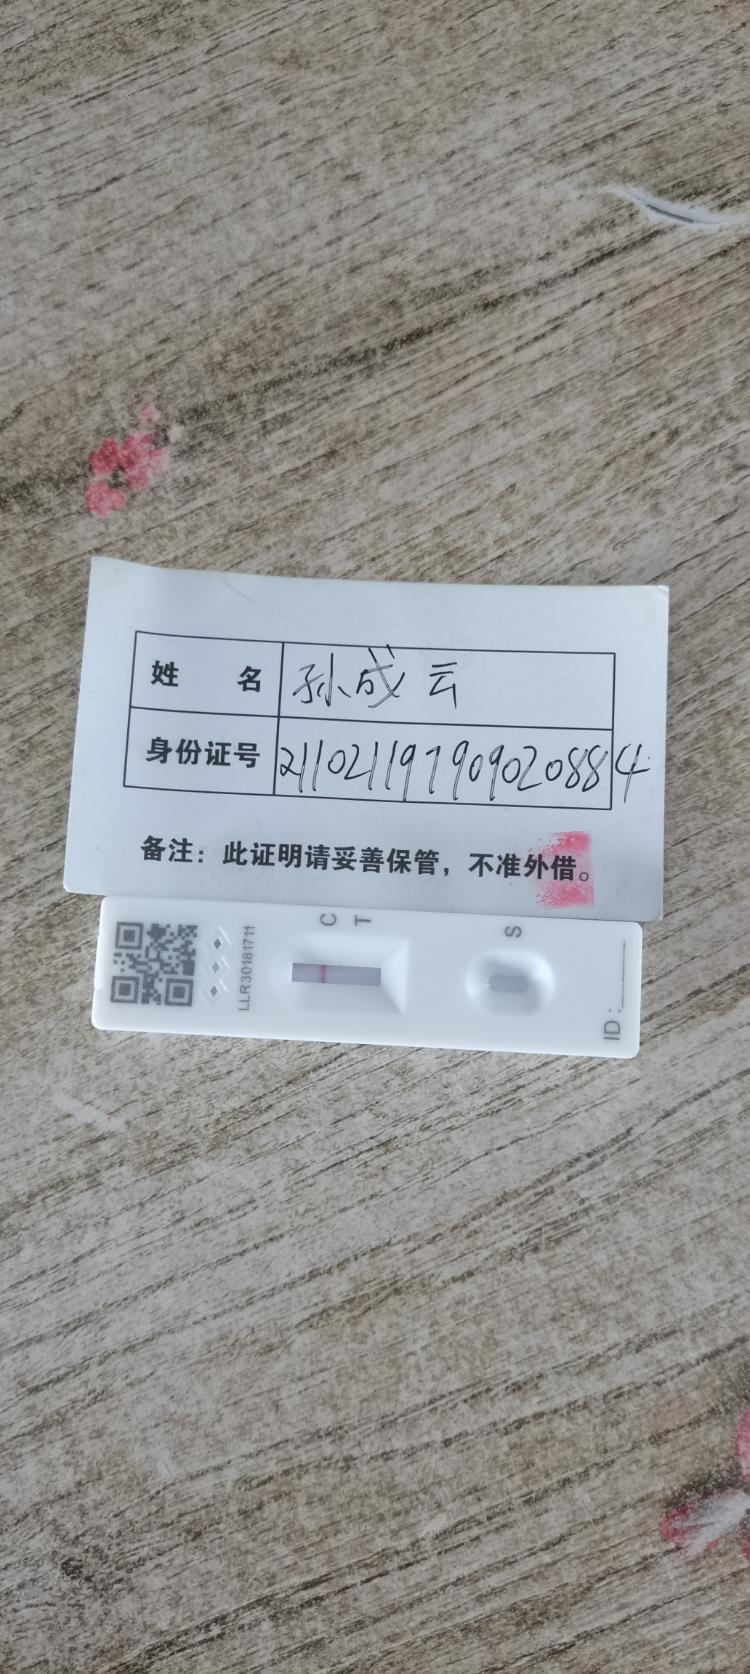 姓 名 孙成云
身份证号 211021197909020884
备注：此证明请妥善保管，不准外借。
LLR30181711
C
T
S
ID: